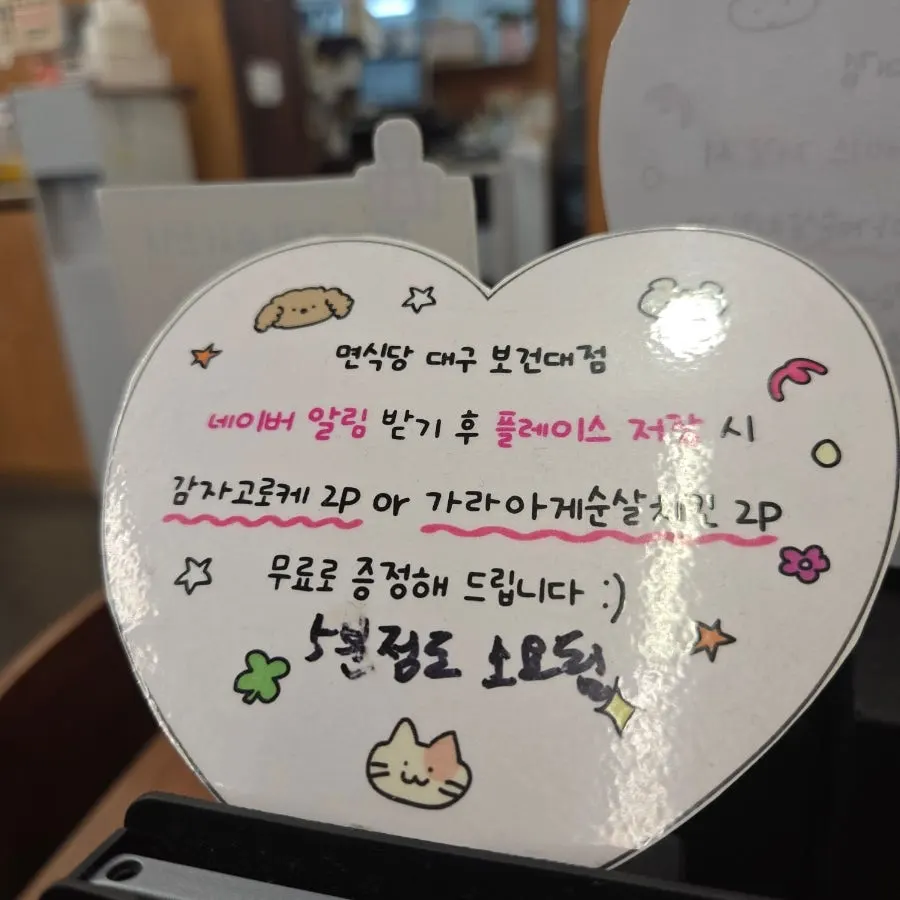 면식당 대구 보건대점
네이버 알림 받기 후 플레이스 저장 시
감자고로케 2P or 가라아게순살치킨 2P
무료로 증정해 드립니다 :)
5분 점도 소요됨